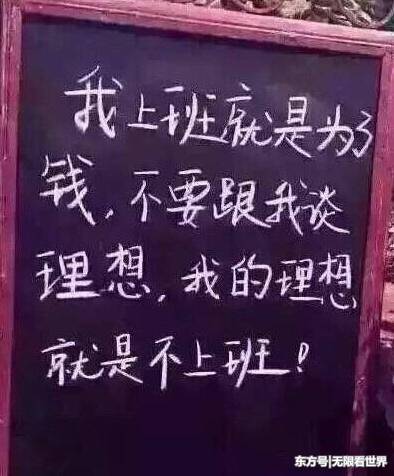 我上班就是为了
钱，不要跟我谈
理想，我的理想
就是不上班！
东方号|无限看世界